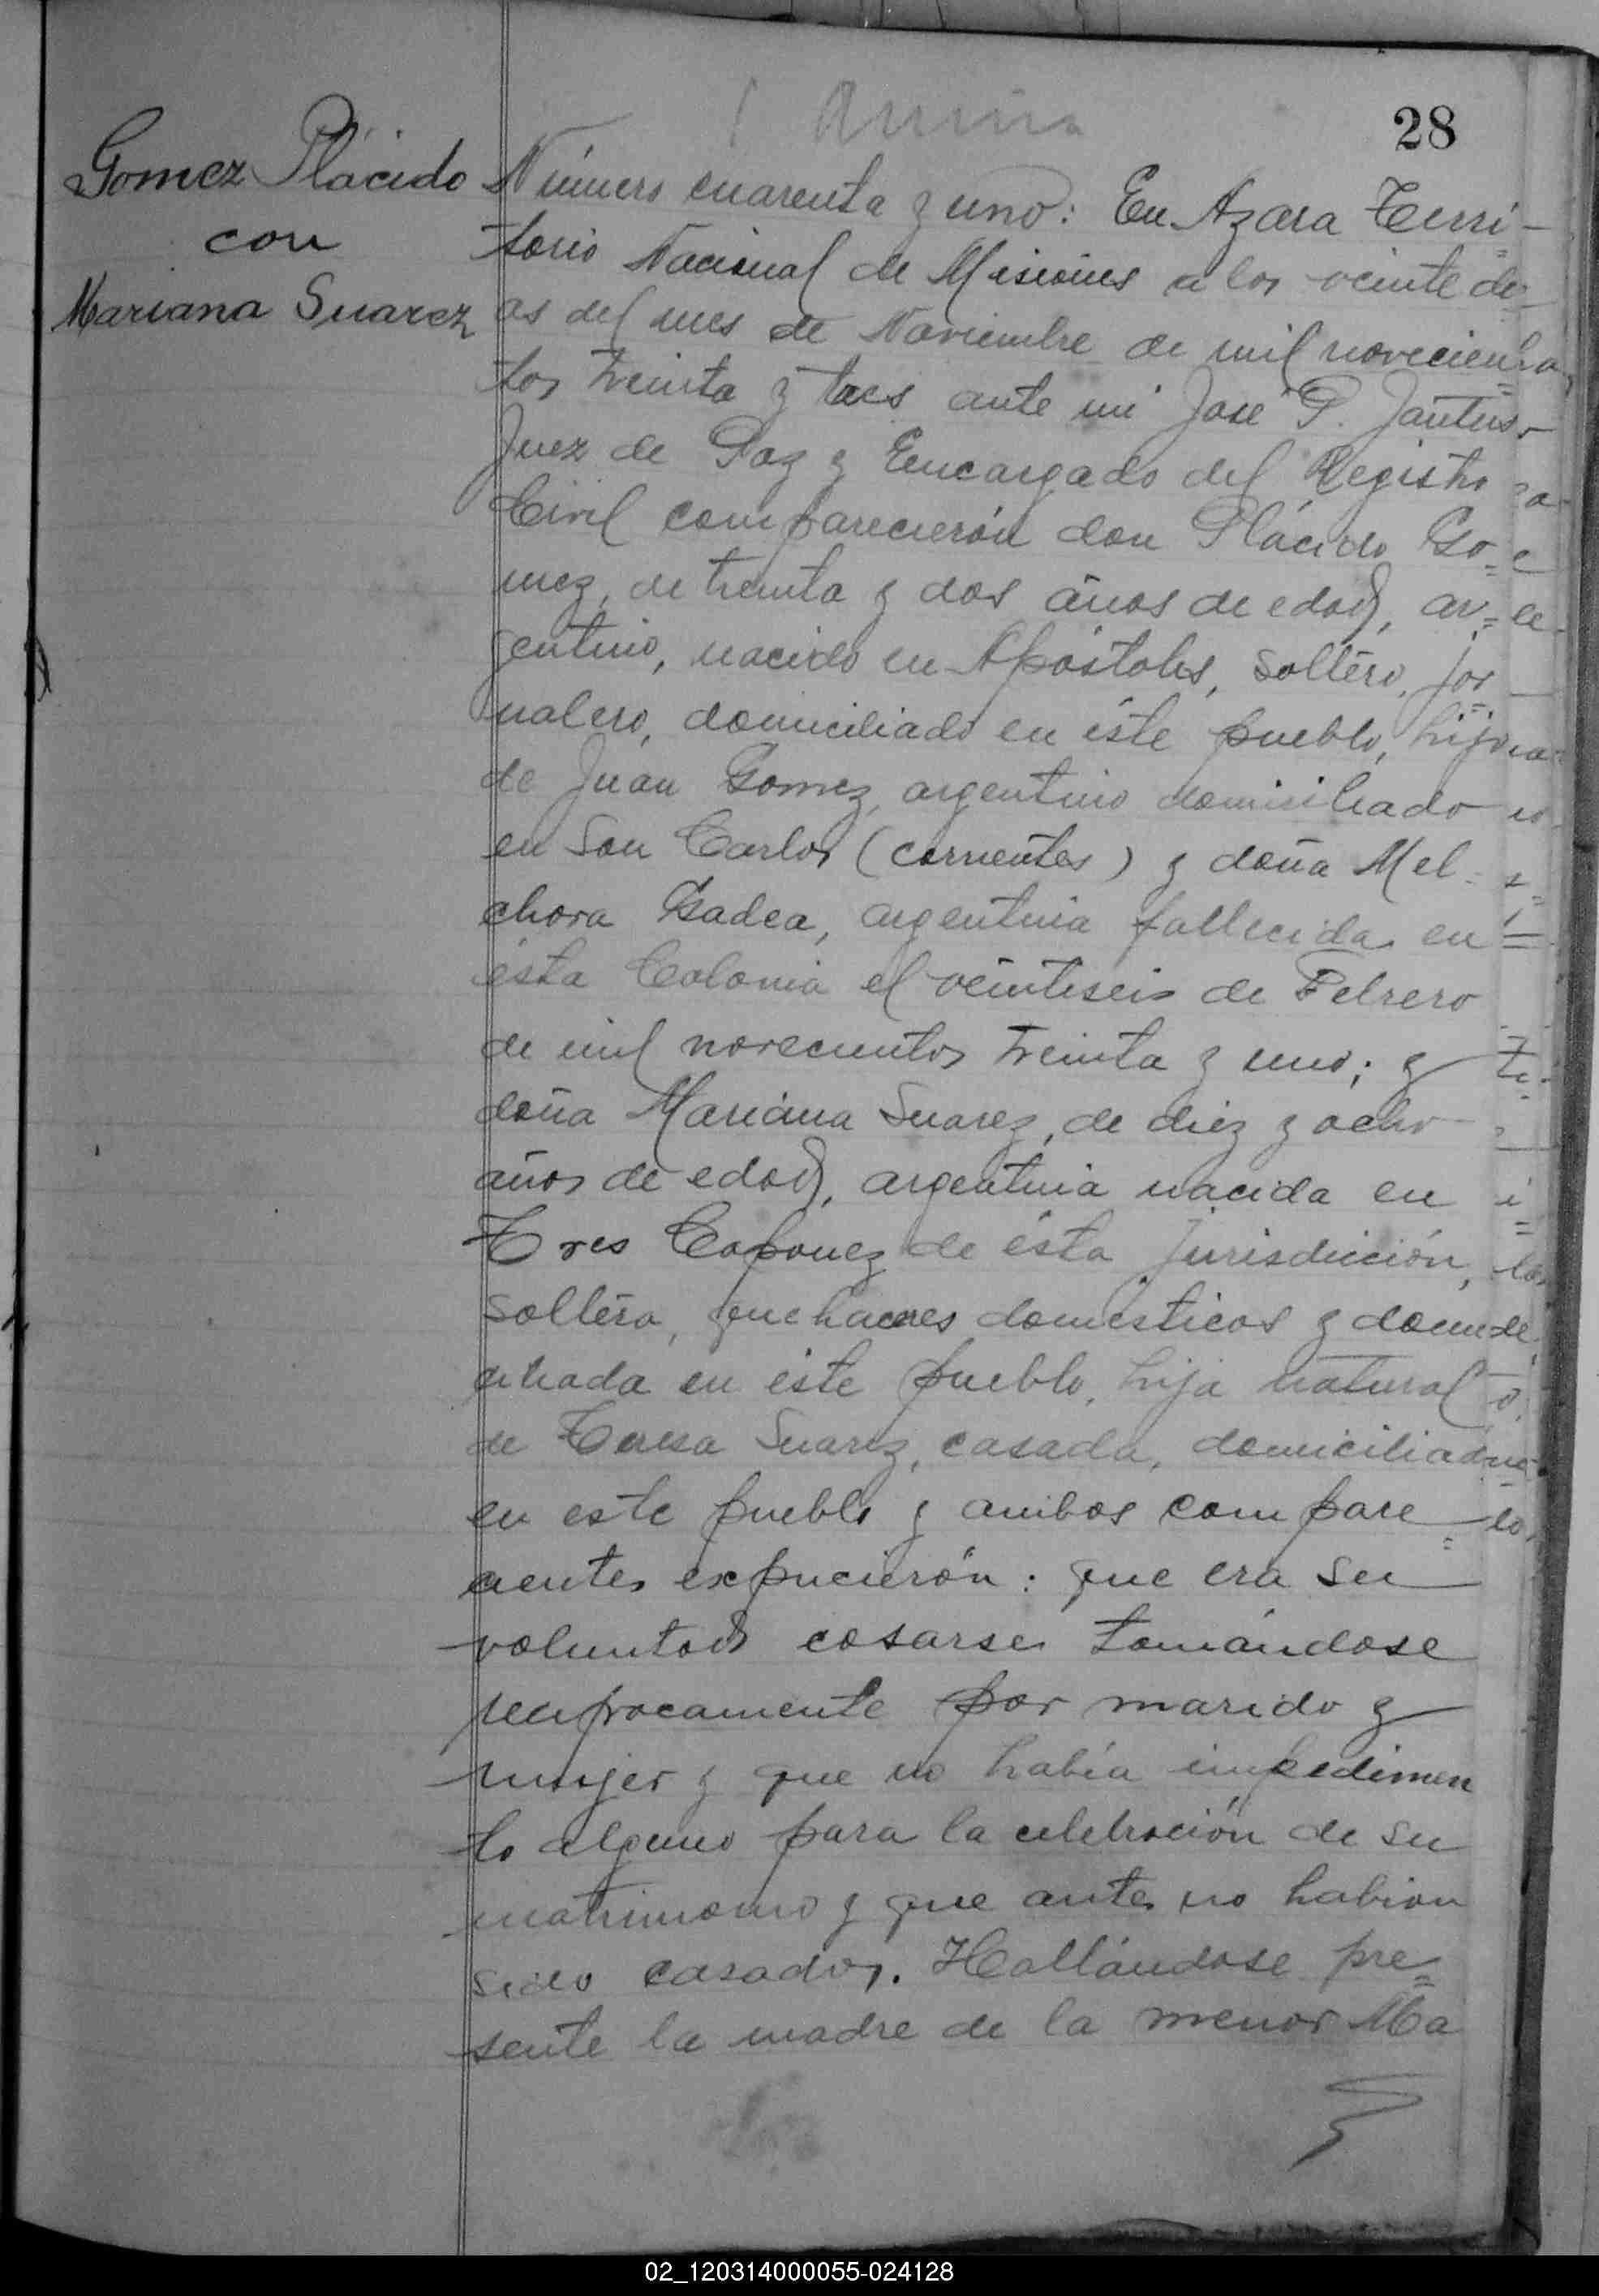 28
Gomez Plácido
con
Mariana Suarez
Número cuarenta y uno: En Azara Terri-
torio Nacional de Misiones a los veinte di-
as del mes de Noviembre de mil novecien-
tos treinta y tres ante mi José P. Jantus
Juez de Paz y Encargado del Registro
Civil comparecierón don Plácido Go=
mez, de treinta y dos años de edad, ar=
gentino, nacido en Apóstoles, soltéro, jor=
nalero, domiciliado en éste pueblo, hijo
de Juan Gomez, argentino domisiliado
en San Carlos (corrientes) y doña Mel=
chora Gadea, argentina fallecida en
ésta Colonia el veintiseis de Febrero
de mil novecientos treinta y uno; y
doña Mariana Suarez, de diez y ocho
años de edad, argentina nacida en
Tres Caponez de ésta jurisdicción,
soltéra, quehaceres domesticos y domi
ciliada en éste pueblo, hija natural
de Teresa Suarez, casada, domiciliada
en este pueblo y ambos compare=
cientes expucierón: que era su
voluntad casarse tomándose
reciprocamente por marido y
mujer y que no había impedimen
to alguno para la celebración de su
matrimonio y que antes no habian
sido casados. Hallándose pre=
sente la madre de la menor Ma
02_120314000055-024128